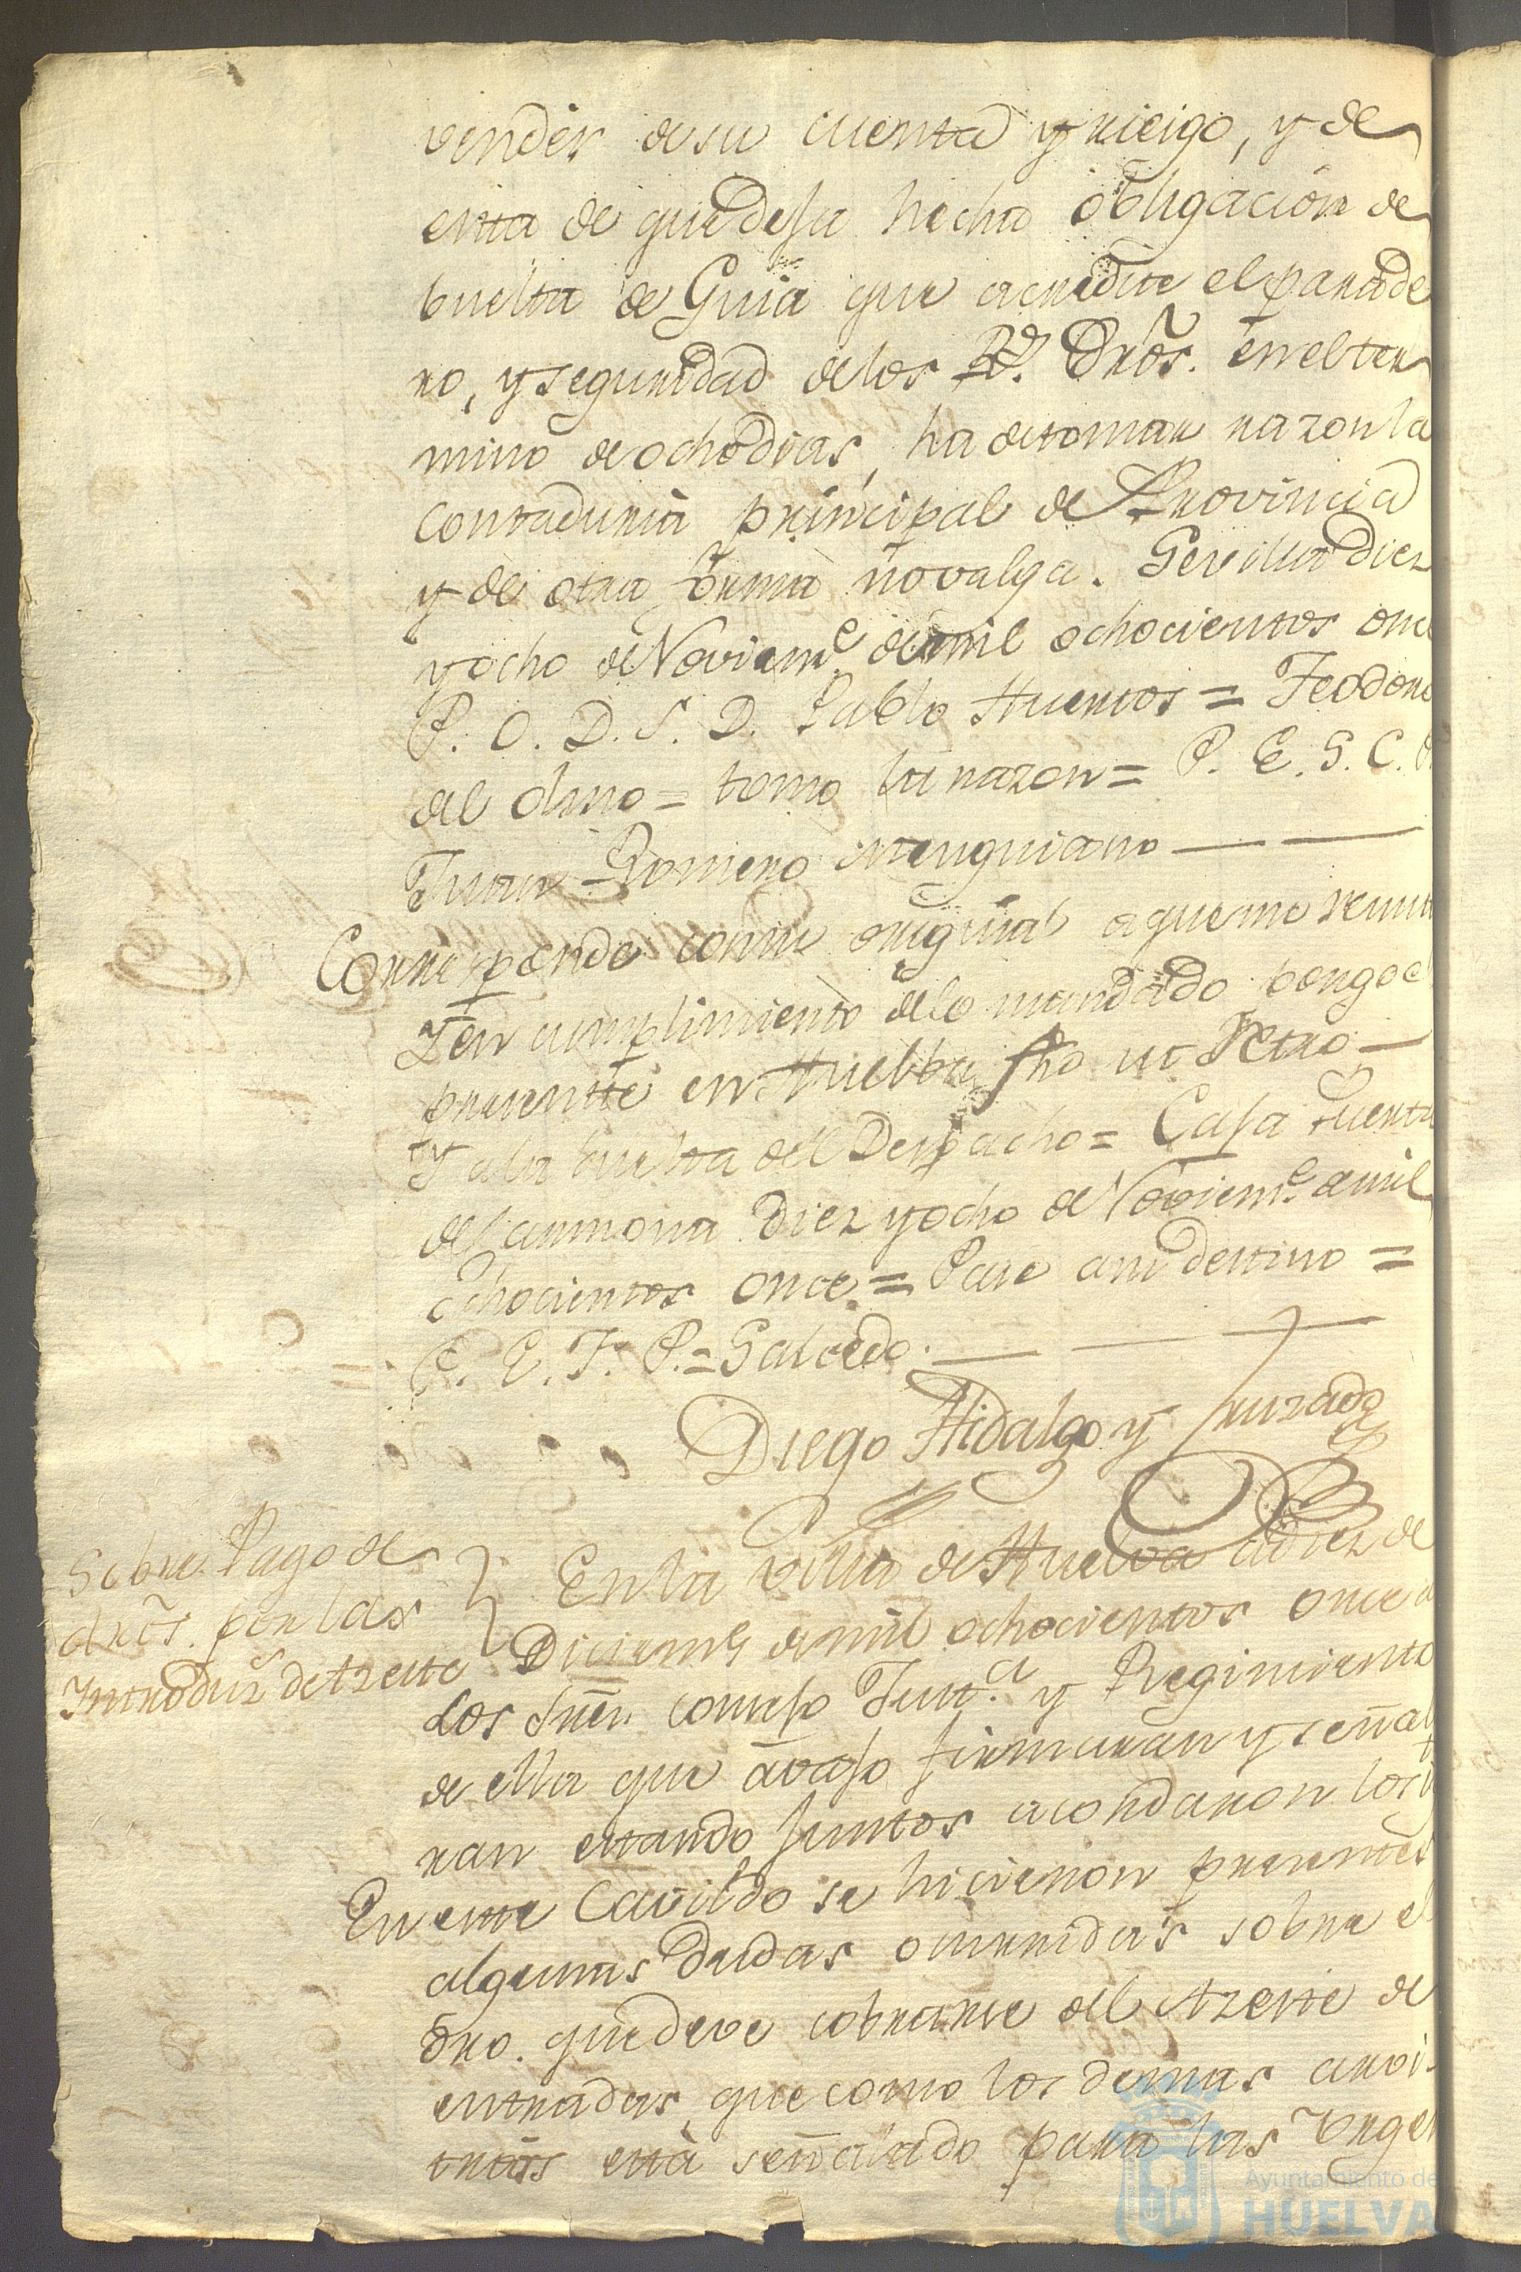 vender de su cuenta y riesgo, y de
esta de que deja hecha obligacion de
buelta de Guia que acredite el parade
ro, y seguridad de los Rs. Dros. en el ter
mino de ocho dias, ha de tomar razon la
Contaduria principal de Provincia
y de otra forma no valga. Sevilla diez
y ocho de Noviemе. de mil ochocientos once
P. O. D. S. D. Pablo Huertos = Teodoro
del Olmo = tomo la razon = P. E. S. C.
Juan Romero Menguiano
Corresponde con su original a que me remito
Y en cumplimiento de lo mandado pongo el
presente en Huelba fho ut Retro
Y a la buelta del Despacho = Casa Puerta
de Carmona Diez y ocho de Novieme. de mil
ochocientos once = Pase a su destino =
E. T. P. = Salcedo.
Diego Hidalgo y Jurado
Sobre Pago de
dros. por las
Introduz.s de Azeite
En la Villa de Huelva a diez de
Diciemb. de mil ochocientos once
Los Sres. Consejo Just.a y Regimiento
de ella que avajo firmaran y señala
ran estando juntos acordaron los
En este Cavildo se hicieron presentes
algunas dudas ocurridas sobre el
dro. que deve cobrarse del Azeite de
entradas, que como los demas arvi-
trios está señalado para las Urgen
Ayuntamiento de
HUELVA